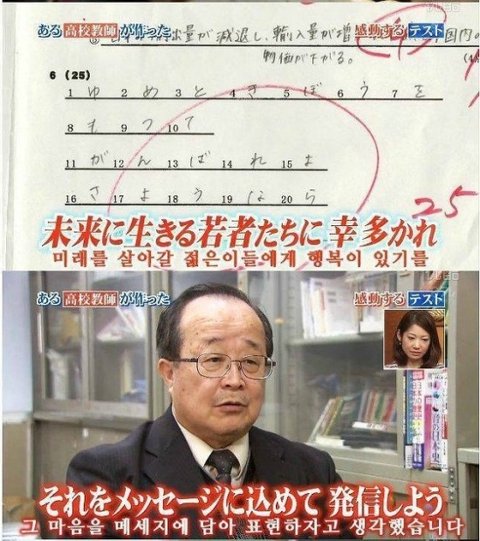 ある高校教師が作った 感動するテスト
物価が下がる。
6 (25)
1 ゆ 2 め 3 と 4 き 5 ぼ 6 う 7 を
8 も 9 つ 10 て
11 が 12 ん 13 ば 14 れ 15 よ
16 さ 17 よ 18 う 19 な 20 ら
25
未来に生きる若者たちに 幸多かれ
미래를 살아갈 젊은이들에게 행복이 있기를
ある高校教師が作った 感動するテスト
それをメッセージに込めて 発信しよう
그 마음을 메세지에 담아 표현하자고 생각했습니다